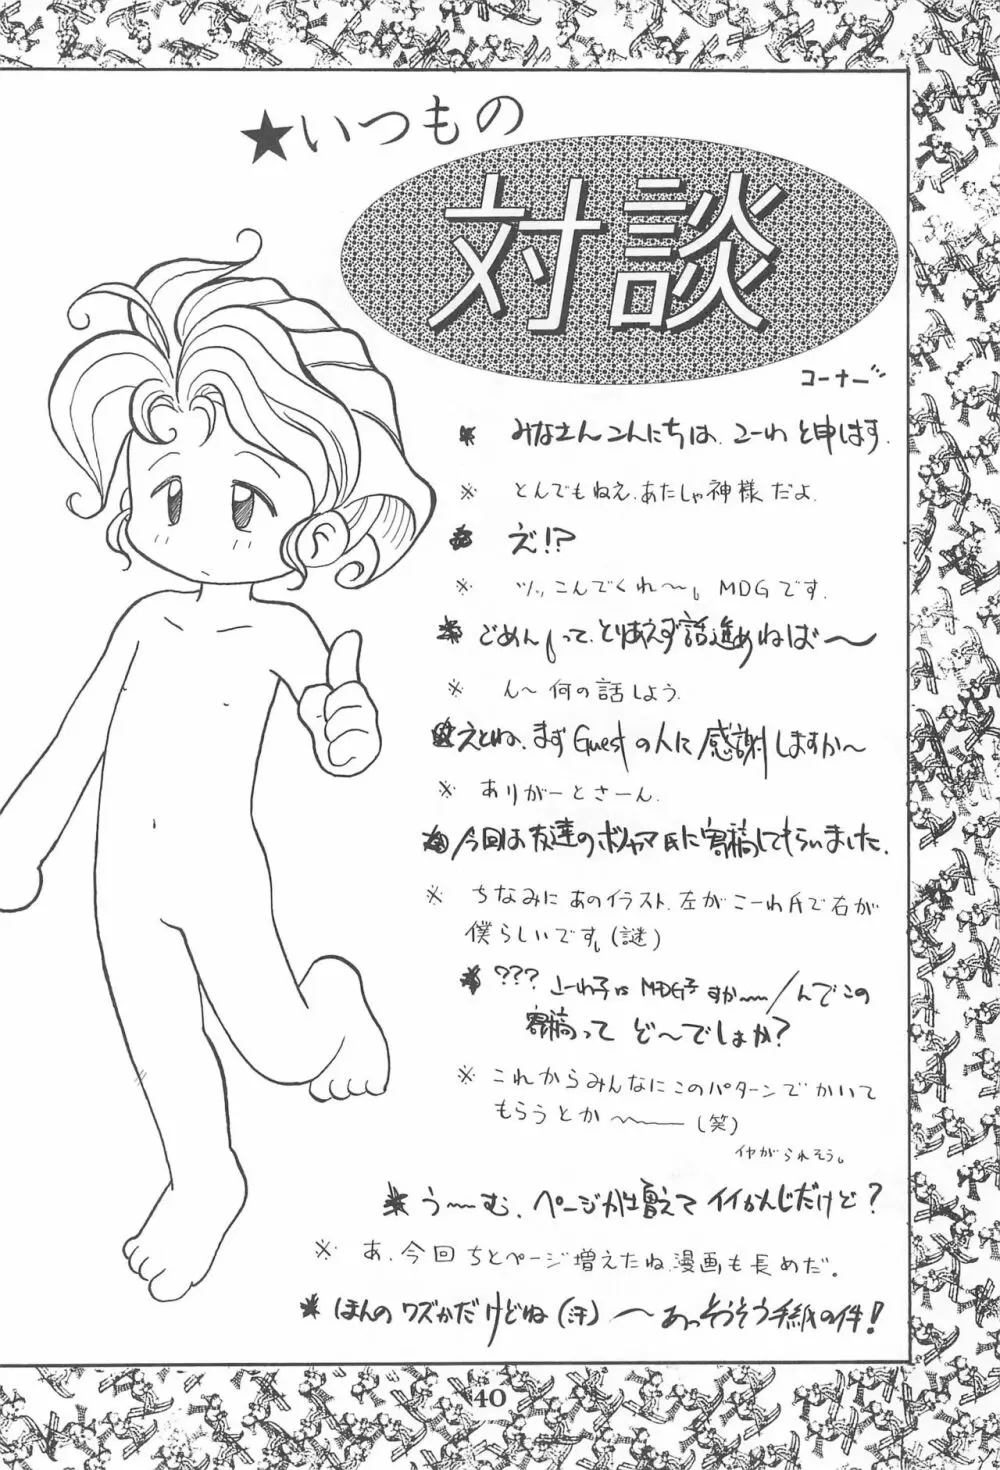 ★いつもの
対談
コーナー
* みなさんこんにちは、こーわと申します.
※ とんでもねえ、あたしゃ神様だよ.
* え!?
※ ツッこんでくれ〜。MDGです.
* ごめんって、とりあえず話進めねば〜
※ ん〜何の話しよう.
* えとね、まずGuestの人に感謝しますか〜
※ ありがーとさーん.
* 今回は友達のボリャマ氏に寄稿してもらいました.
※ ちなみにあのイラスト、左がこーわ氏で右が
僕らしいです。(謎)
* ??? こーわ子 vs MDG子すか〜〜/んでこの
寄稿って ど〜でしょか?
※ これからみんなにこのパターンでかいて
もらうとか〜〜(笑)
イヤがられそう。
* う〜〜む、ページが増えてイイかんじだけど?
※ あ、今回ちとページ増えたね、漫画も長めだ。
* ほんのワズかだけどね(汗)〜あっそうそう手紙の件!
40